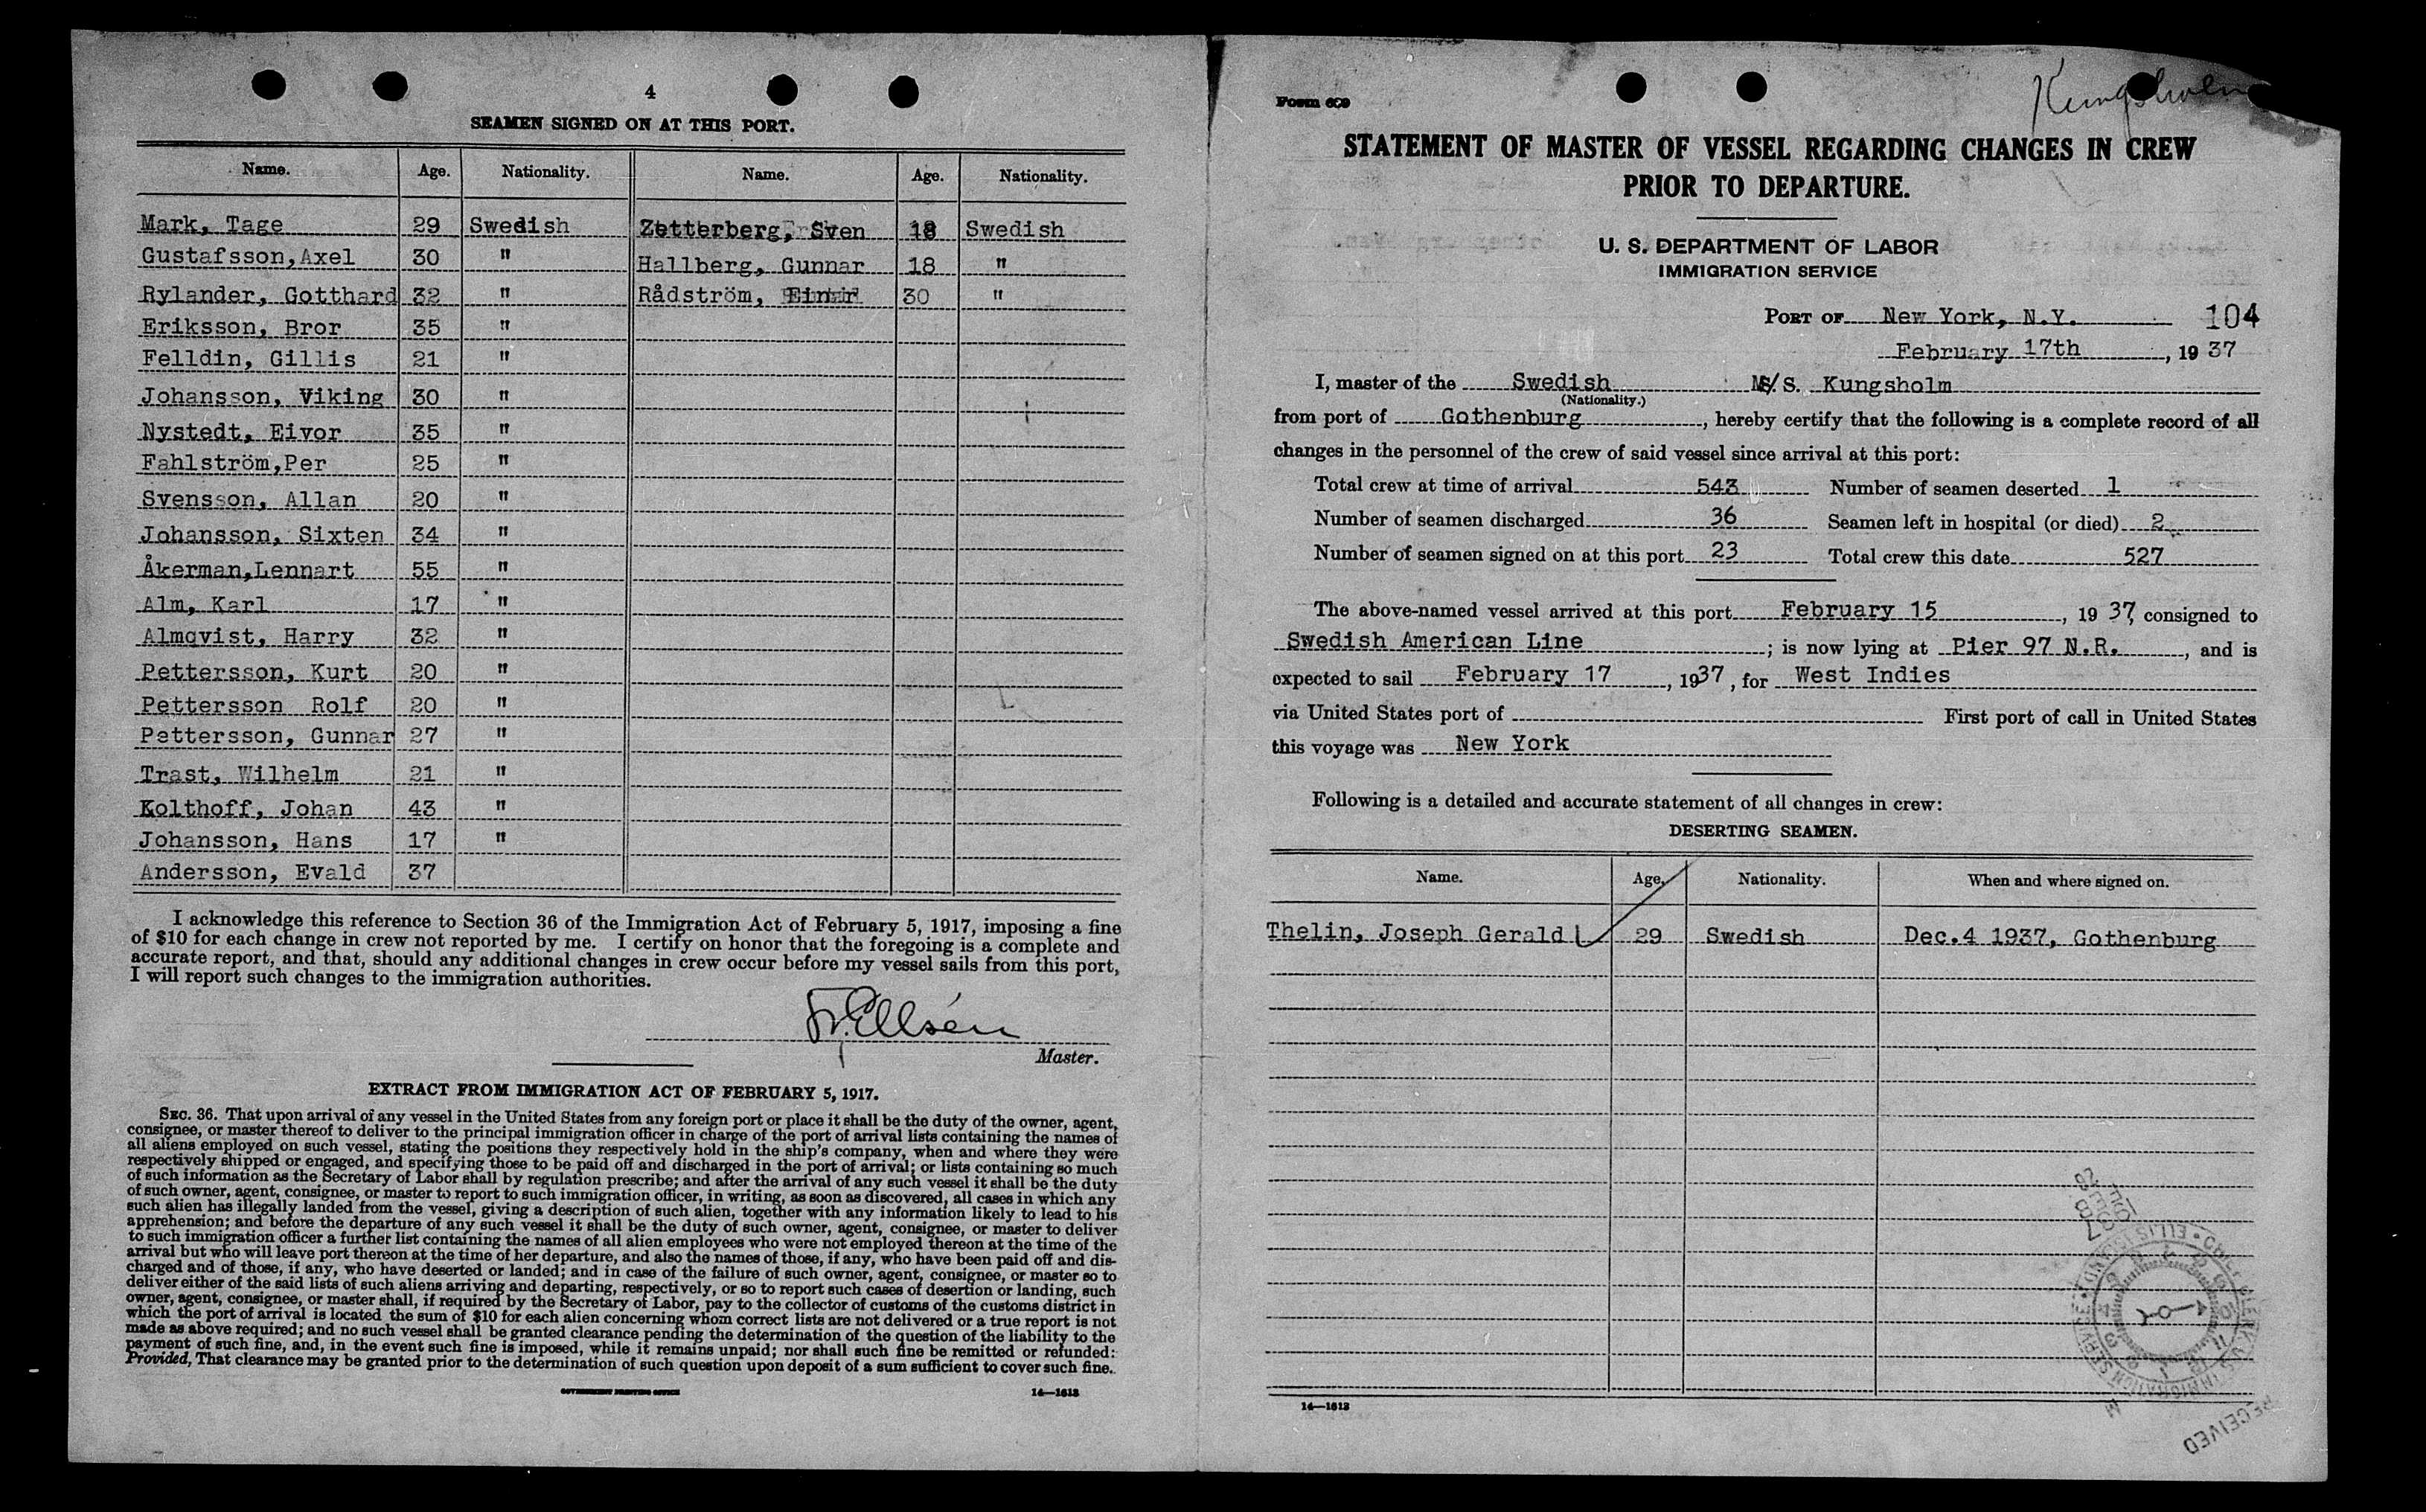 4
SEAMEN SIGNED ON AT THIS PORT.
Name. Age. Nationality. Name. Age. Nationality.
Mark, Tage 29 Swedish Zetterberg, Sven 18 Swedish
Gustafsson,Axel 30 " Hallberg, Gunnar 18 "
Rylander, Gotthard 32 " Rådström, Einar 30 "
Eriksson, Bror 35 "
Felldin, Gillis 21 "
Johansson, Viking 30 "
Nystedt, Eivor 35 "
Fahlström,Per 25 "
Svensson, Allan 20 "
Johansson, Sixten 34 "
Åkerman,Lennart 55 "
Alm, Karl 17 "
Almqvist, Harry 32 "
Pettersson, Kurt 20 "
Pettersson Rolf 20 "
Pettersson, Gunnar 27 "
Trast, Wilhelm 21 "
Kolthoff, Johan 43 "
Johansson, Hans 17 "
Andersson, Evald 37
I acknowledge this reference to Section 36 of the Immigration Act of February 5, 1917, imposing a fine
of $10 for each change in crew not reported by me. I certify on honor that the foregoing is a complete and
accurate report, and that, should any additional changes in crew occur before my vessel sails from this port,
I will report such changes to the immigration authorities.
Ellsén
Master.
EXTRACT FROM IMMIGRATION ACT OF FEBRUARY 5, 1917.
SEC. 36. That upon arrival of any vessel in the United States from any foreign port or place it shall be the duty of the owner, agent,
consignee, or master thereof to deliver to the principal immigration officer in charge of the port of arrival lists containing the names of
all aliens employed on such vessel, stating the positions they respectively hold in the ship's company, when and where they were
respectively shipped or engaged, and specifying those to be paid off and discharged in the port of arrival; or lists containing so much
of such information as the Secretary of Labor shall by regulation prescribe; and after the arrival of any such vessel it shall be the duty
of such owner, agent, consignee, or master to report to such immigration officer, in writing, as soon as discovered, all cases in which any
such alien has illegally landed from the vessel, giving a description of such alien, together with any information likely to lead to his
apprehension; and before the departure of any such vessel it shall be the duty of such owner, agent, consignee, or master to deliver
to such immigration officer a further list containing the names of all alien employees who were not employed thereon at the time of the
arrival but who will leave port thereon at the time of her departure, and also the names of those, if any, who have been paid off and dis-
charged and of those, if any, who have deserted or landed; and in case of the failure of such owner, agent, consignee, or master so to
deliver either of the said lists of such aliens arriving and departing, respectively, or so to report such cases of desertion or landing, such
owner, agent, consignee, or master shall, if required by the Secretary of Labor, pay to the collector of customs of the customs district in
which the port of arrival is located the sum of $10 for each alien concerning whom correct lists are not delivered or a true report is not
made as above required; and no such vessel shall be granted clearance pending the determination of the question of the liability to the
payment of such fine, and, in the event such fine is imposed, while it remains unpaid; nor shall such fine be remitted or refunded:
Provided, That clearance may be granted prior to the determination of such question upon deposit of a sum sufficient to cover such fine.
GOVERNMENT PRINTING OFFICE 14—1613
Kungsholm
Form 689
STATEMENT OF MASTER OF VESSEL REGARDING CHANGES IN CREW
PRIOR TO DEPARTURE.
U. S. DEPARTMENT OF LABOR
IMMIGRATION SERVICE
PORT OF New York, N.Y. 104
February 17th, 1937
I, master of the Swedish M/S. Kungsholm
(Nationality.)
from port of Gothenburg, hereby certify that the following is a complete record of all
changes in the personnel of the crew of said vessel since arrival at this port:
Total crew at time of arrival 543 Number of seamen deserted 1
Number of seamen discharged 36 Seamen left in hospital (or died) 2
Number of seamen signed on at this port 23 Total crew this date 527
The above-named vessel arrived at this port February 15, 1937, consigned to
Swedish American Line; is now lying at Pier 97 N.R., and is
expected to sail February 17, 1937, for West Indies
via United States port of First port of call in United States
this voyage was New York
Following is a detailed and accurate statement of all changes in crew:
DESERTING SEAMEN.
Name. Age. Nationality. When and where signed on.
Thelin, Joseph Gerald 29 Swedish Dec.4 1937, Gothenburg
14—1613
RECEIVED